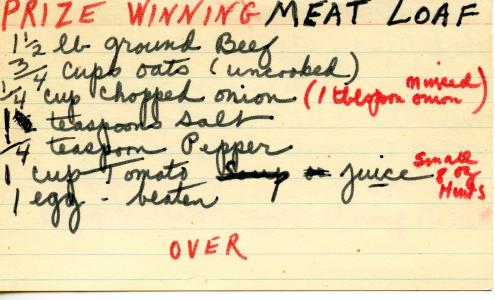 PRIZE WINNING MEAT LOAF
1 1/2 lb ground Beef
3/4 cups oats (uncooked)
1/4 cup chopped onion (1 tblspon minced onion)
1 teaspoons salt
1/4 teaspoon Pepper
1 cup Tomato Soup or juice small 8 oz Hunts
1 egg - beaten
OVER